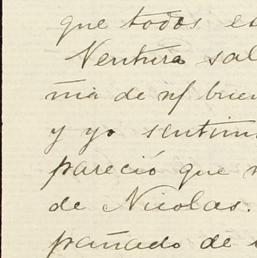 que todos es
Ventura sal
mia de n/ buen
y yo sentim
pareció que
de Nicolas.
pañado de